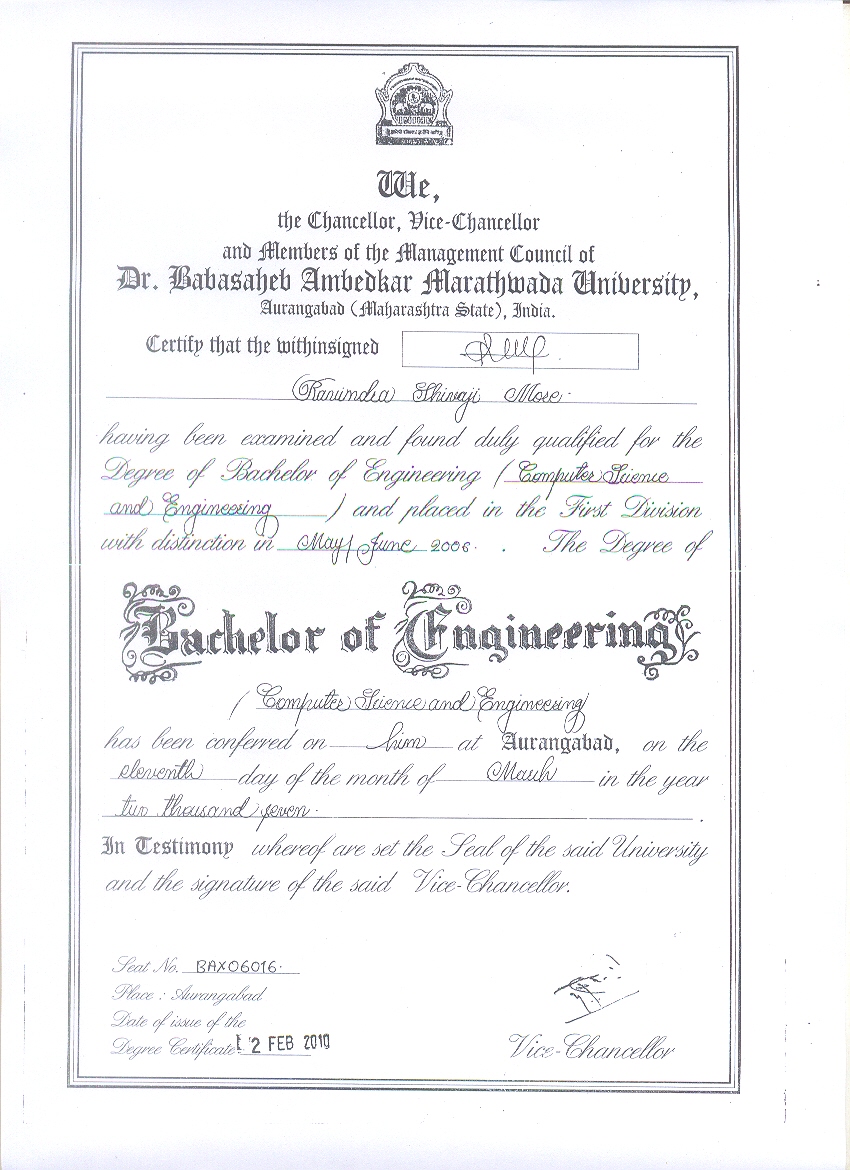 We,
the Chancellor, Vice-Chancellor
and Members of the Management Council of
Dr. Babasaheb Ambedkar Marathwada University,
Aurangabad (Maharashtra State), India.
Certify that the withinsigned
Ravindra Shivaji More.
having been examined and found duly qualified for the
Degree of Bachelor of Engineering ( Computer Science
and Engineering ) and placed in the First Division
with distinction in May/June 2006. . The Degree of
Bachelor of Engineering
( Computer Science and Engineering )
has been conferred on him at Aurangabad, on the
eleventh day of the month of March in the year
two thousand seven. .
In Testimony whereof are set the Seal of the said University
and the signature of the said Vice-Chancellor.
Seat No. BAX06016.
Place : Aurangabad
Date of issue of the
Degree Certificate 2 FEB 2010
Vice-Chancellor